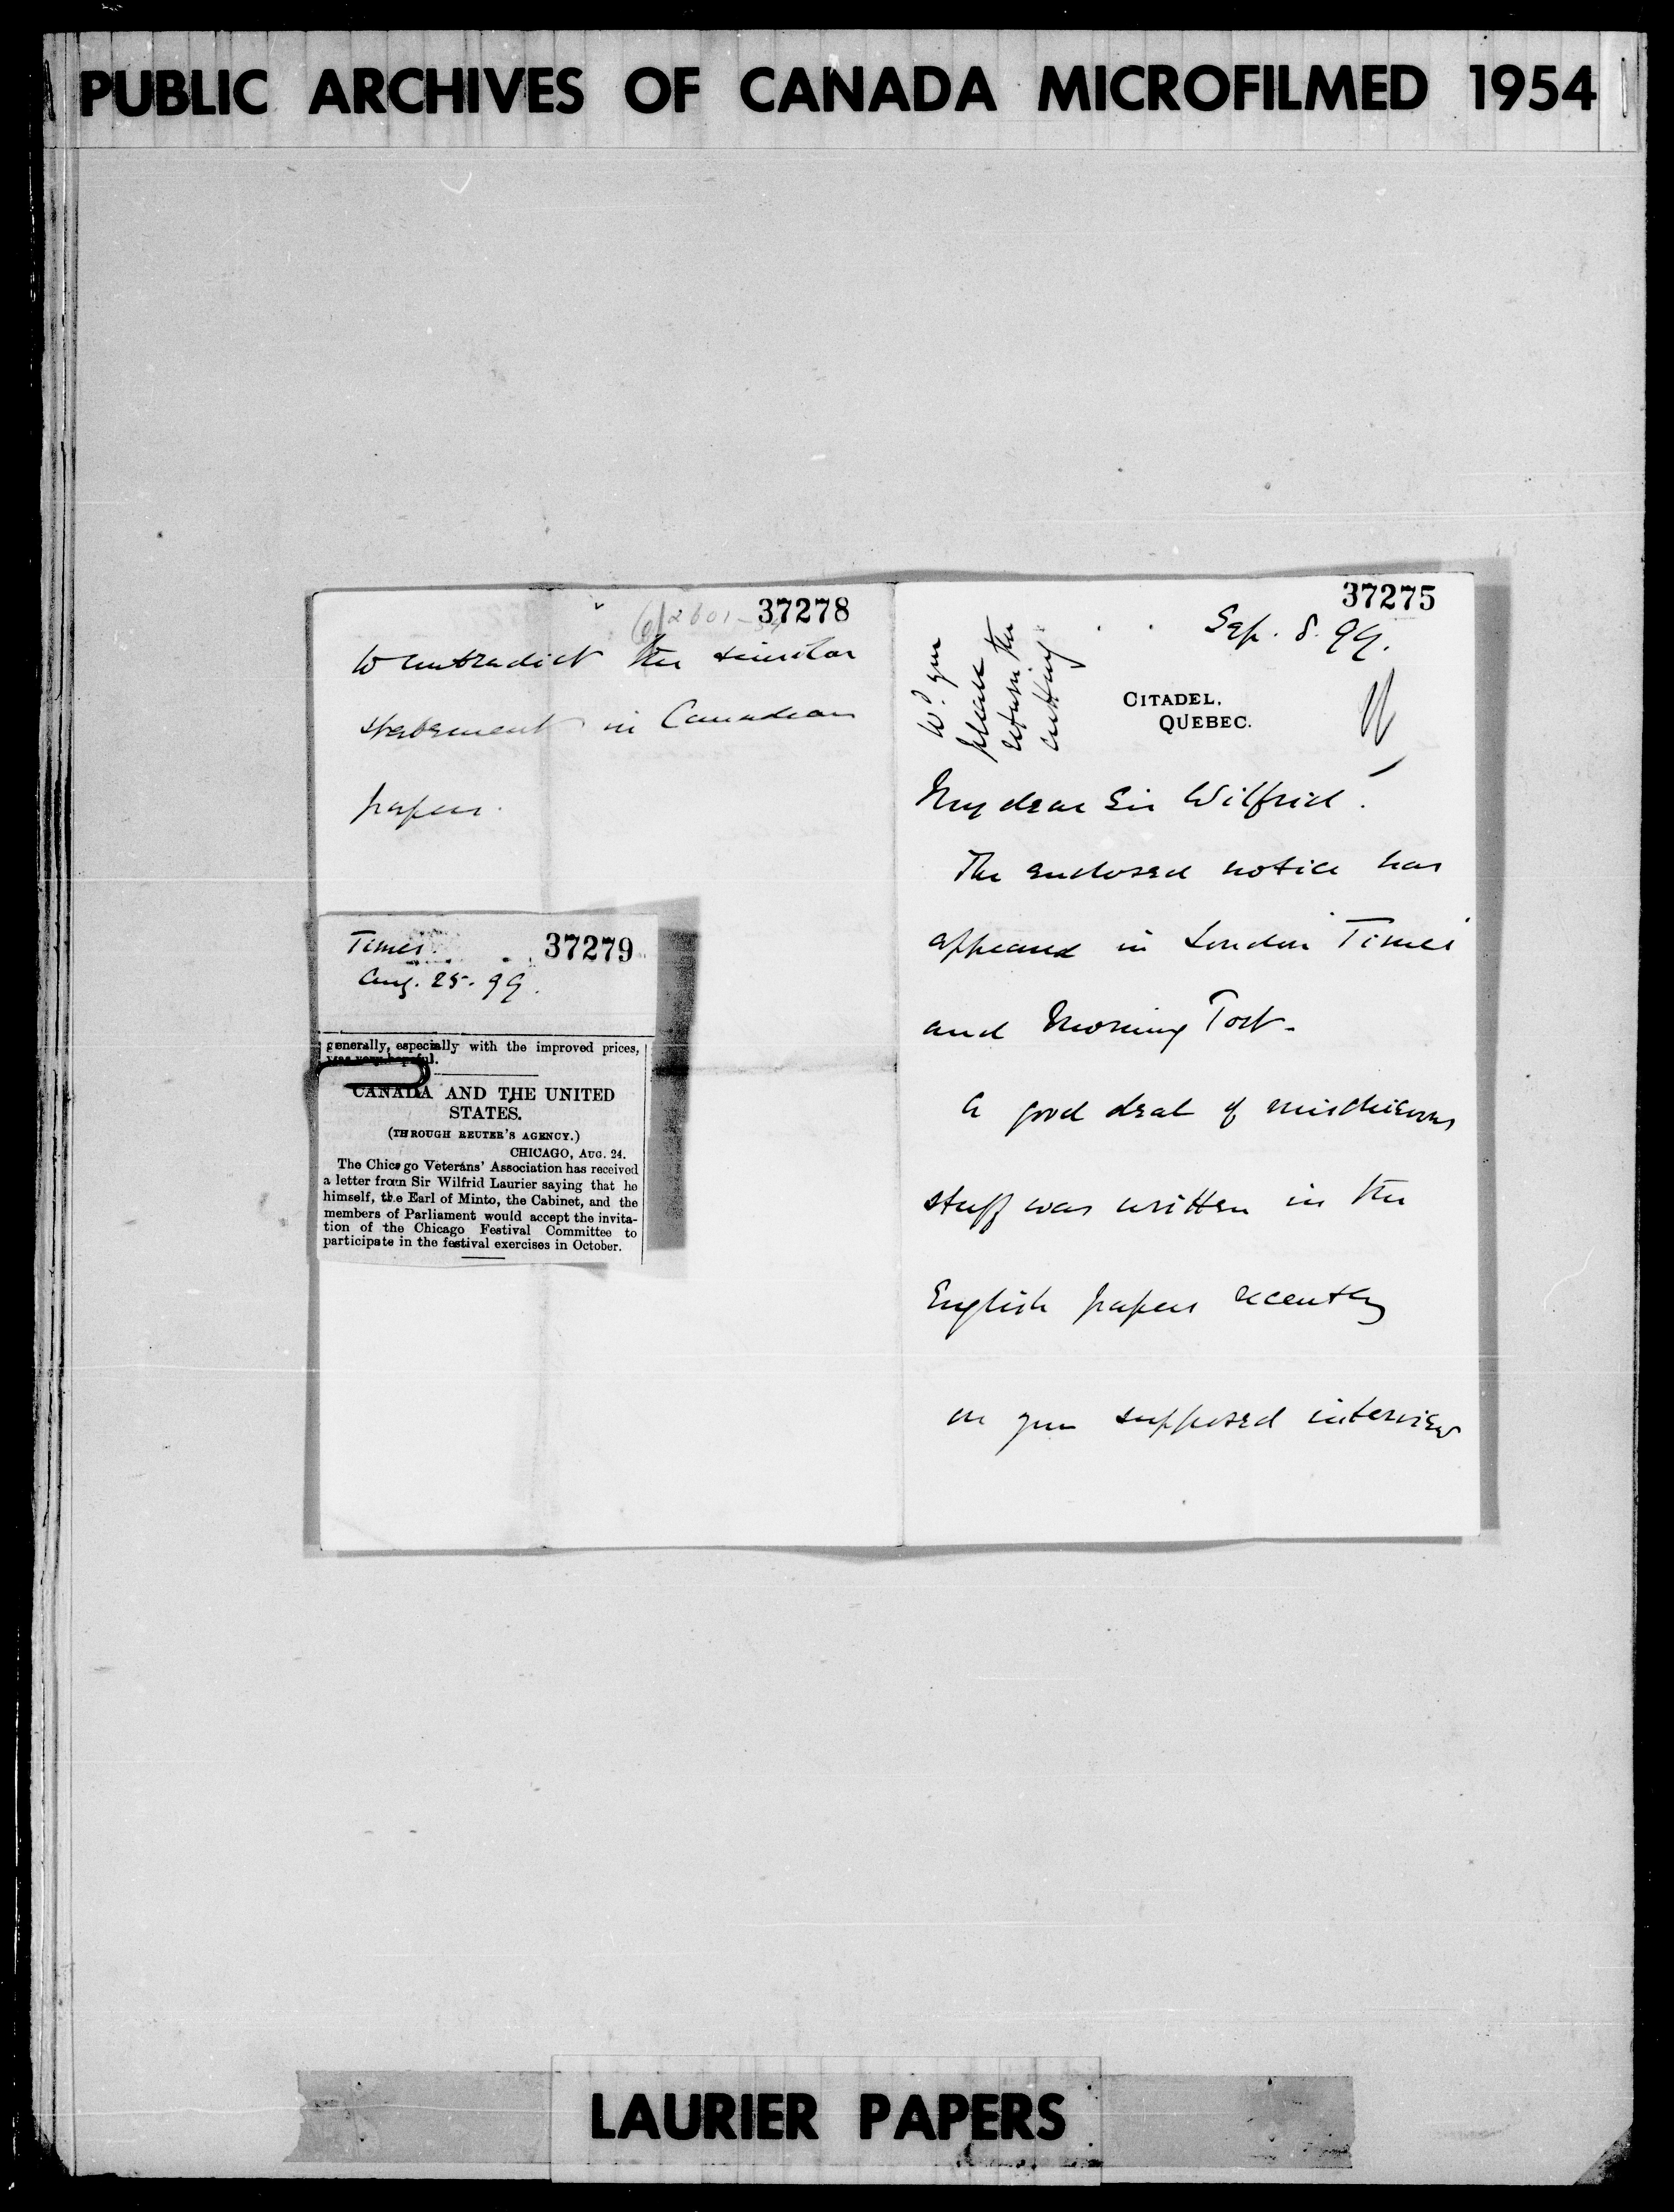 PUBLIC ARCHIVES OF CANADA MICROFILMED 1954
37278
to contradict the similar
statement in Canadian
papers.
Times. 37279
Aug. 25. 99.
generally, especially with the improved prices,
was very hopeful.
CANADA AND THE UNITED
STATES.
(THROUGH REUTER'S AGENCY.)
CHICAGO, AUG. 24.
The Chicago Veterans' Association has received
a letter from Sir Wilfrid Laurier saying that he
himself, the Earl of Minto, the Cabinet, and the
members of Parliament would accept the invita-
tion of the Chicago Festival Committee to
participate in the festival exercises in October.
37275
Sep. 8. 99.
Wd you
please
return the
cutting.
CITADEL.
QUEBEC.
My dear Sir Wilfrid.
The enclosed notice has
appeared in London Times
and Morning Post.
A good deal of mischievous
stuff was written in the
English papers recently
on your supposed interview
LAURIER PAPERS